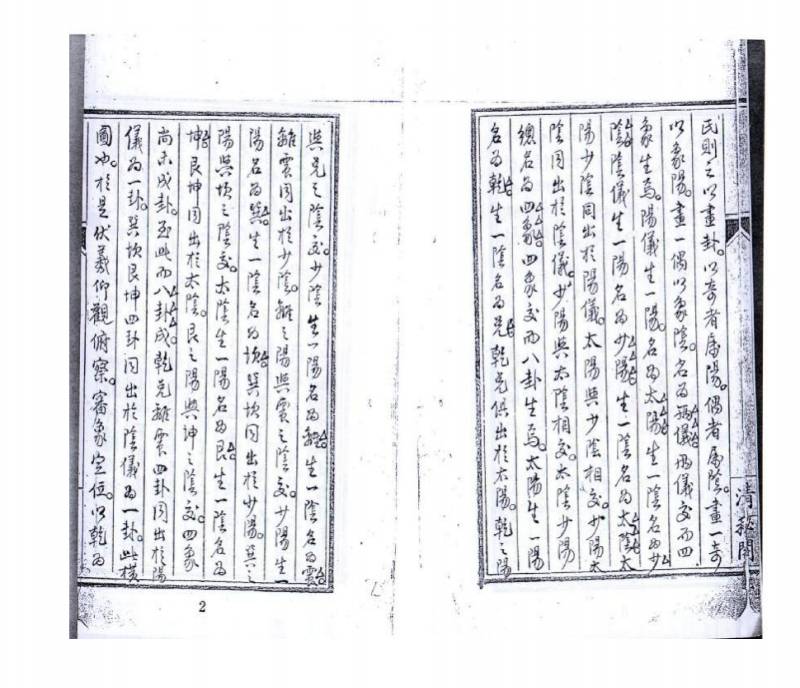 民則之以畫卦。以奇者屬陽。偶者屬陰。畫一奇
以象陽。畫一偶以象陰。名為兩儀。兩儀交而四
象生焉。陽儀生一陽。名為太陽。生一陰名為少
陰。陰儀生一陽名為少陽。生一陰名為太陰。太
陽少陰同出於陽儀。太陽與少陰相交。少陽太
陰同出於陰儀。少陽與太陰相交。太陰少陽
總名為四象。四象交而八卦生焉。太陽生一陽
名為乾。生一陰名為兌。乾兌俱出於太陽。乾之陽
與兌之陰交。少陰生一陽名為離。生一陰名為震
離震同出於少陰。離之陽與震之陰交。少陽生一
陽名為巽。生一陰名為坎。巽坎同出於少陽。巽之
陽與坎之陰交。太陰生一陽名為艮。生一陰名為
坤。艮坤同出於太陰。艮之陽與坤之陰交。四象
尚未成卦。至此而八卦成。乾兌離震四卦同出於陽
儀為一卦。巽坎艮坤四卦同出於陰儀為一卦。此橫
圖也。於是伏羲仰觀俯察。審象定位。以乾為
清 閣
2